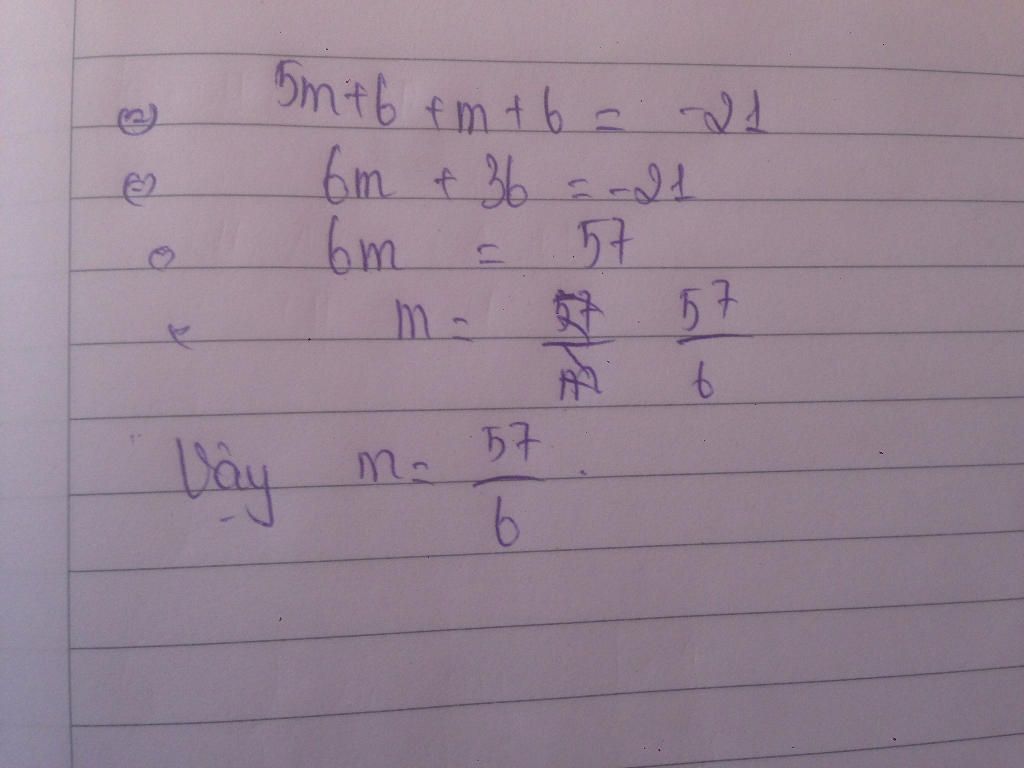 ⇔ 5m+6 +m+6 = -21
⇔ 6m + 36 = -21
6m = 57
m = 57/6
Vậy m = 57/6.